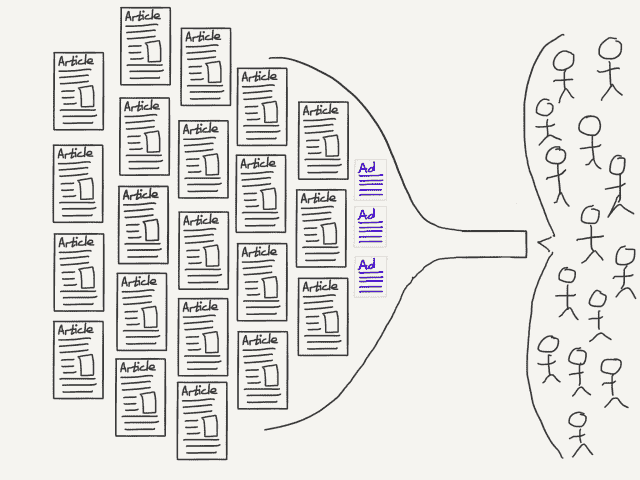 Article
Article
Article
Article
Article
Article
Article
Article
Article
Article
Article
Article
Article
Article
Article
Article
Article
Article
Article
Article
Article
Ad
Ad
Ad